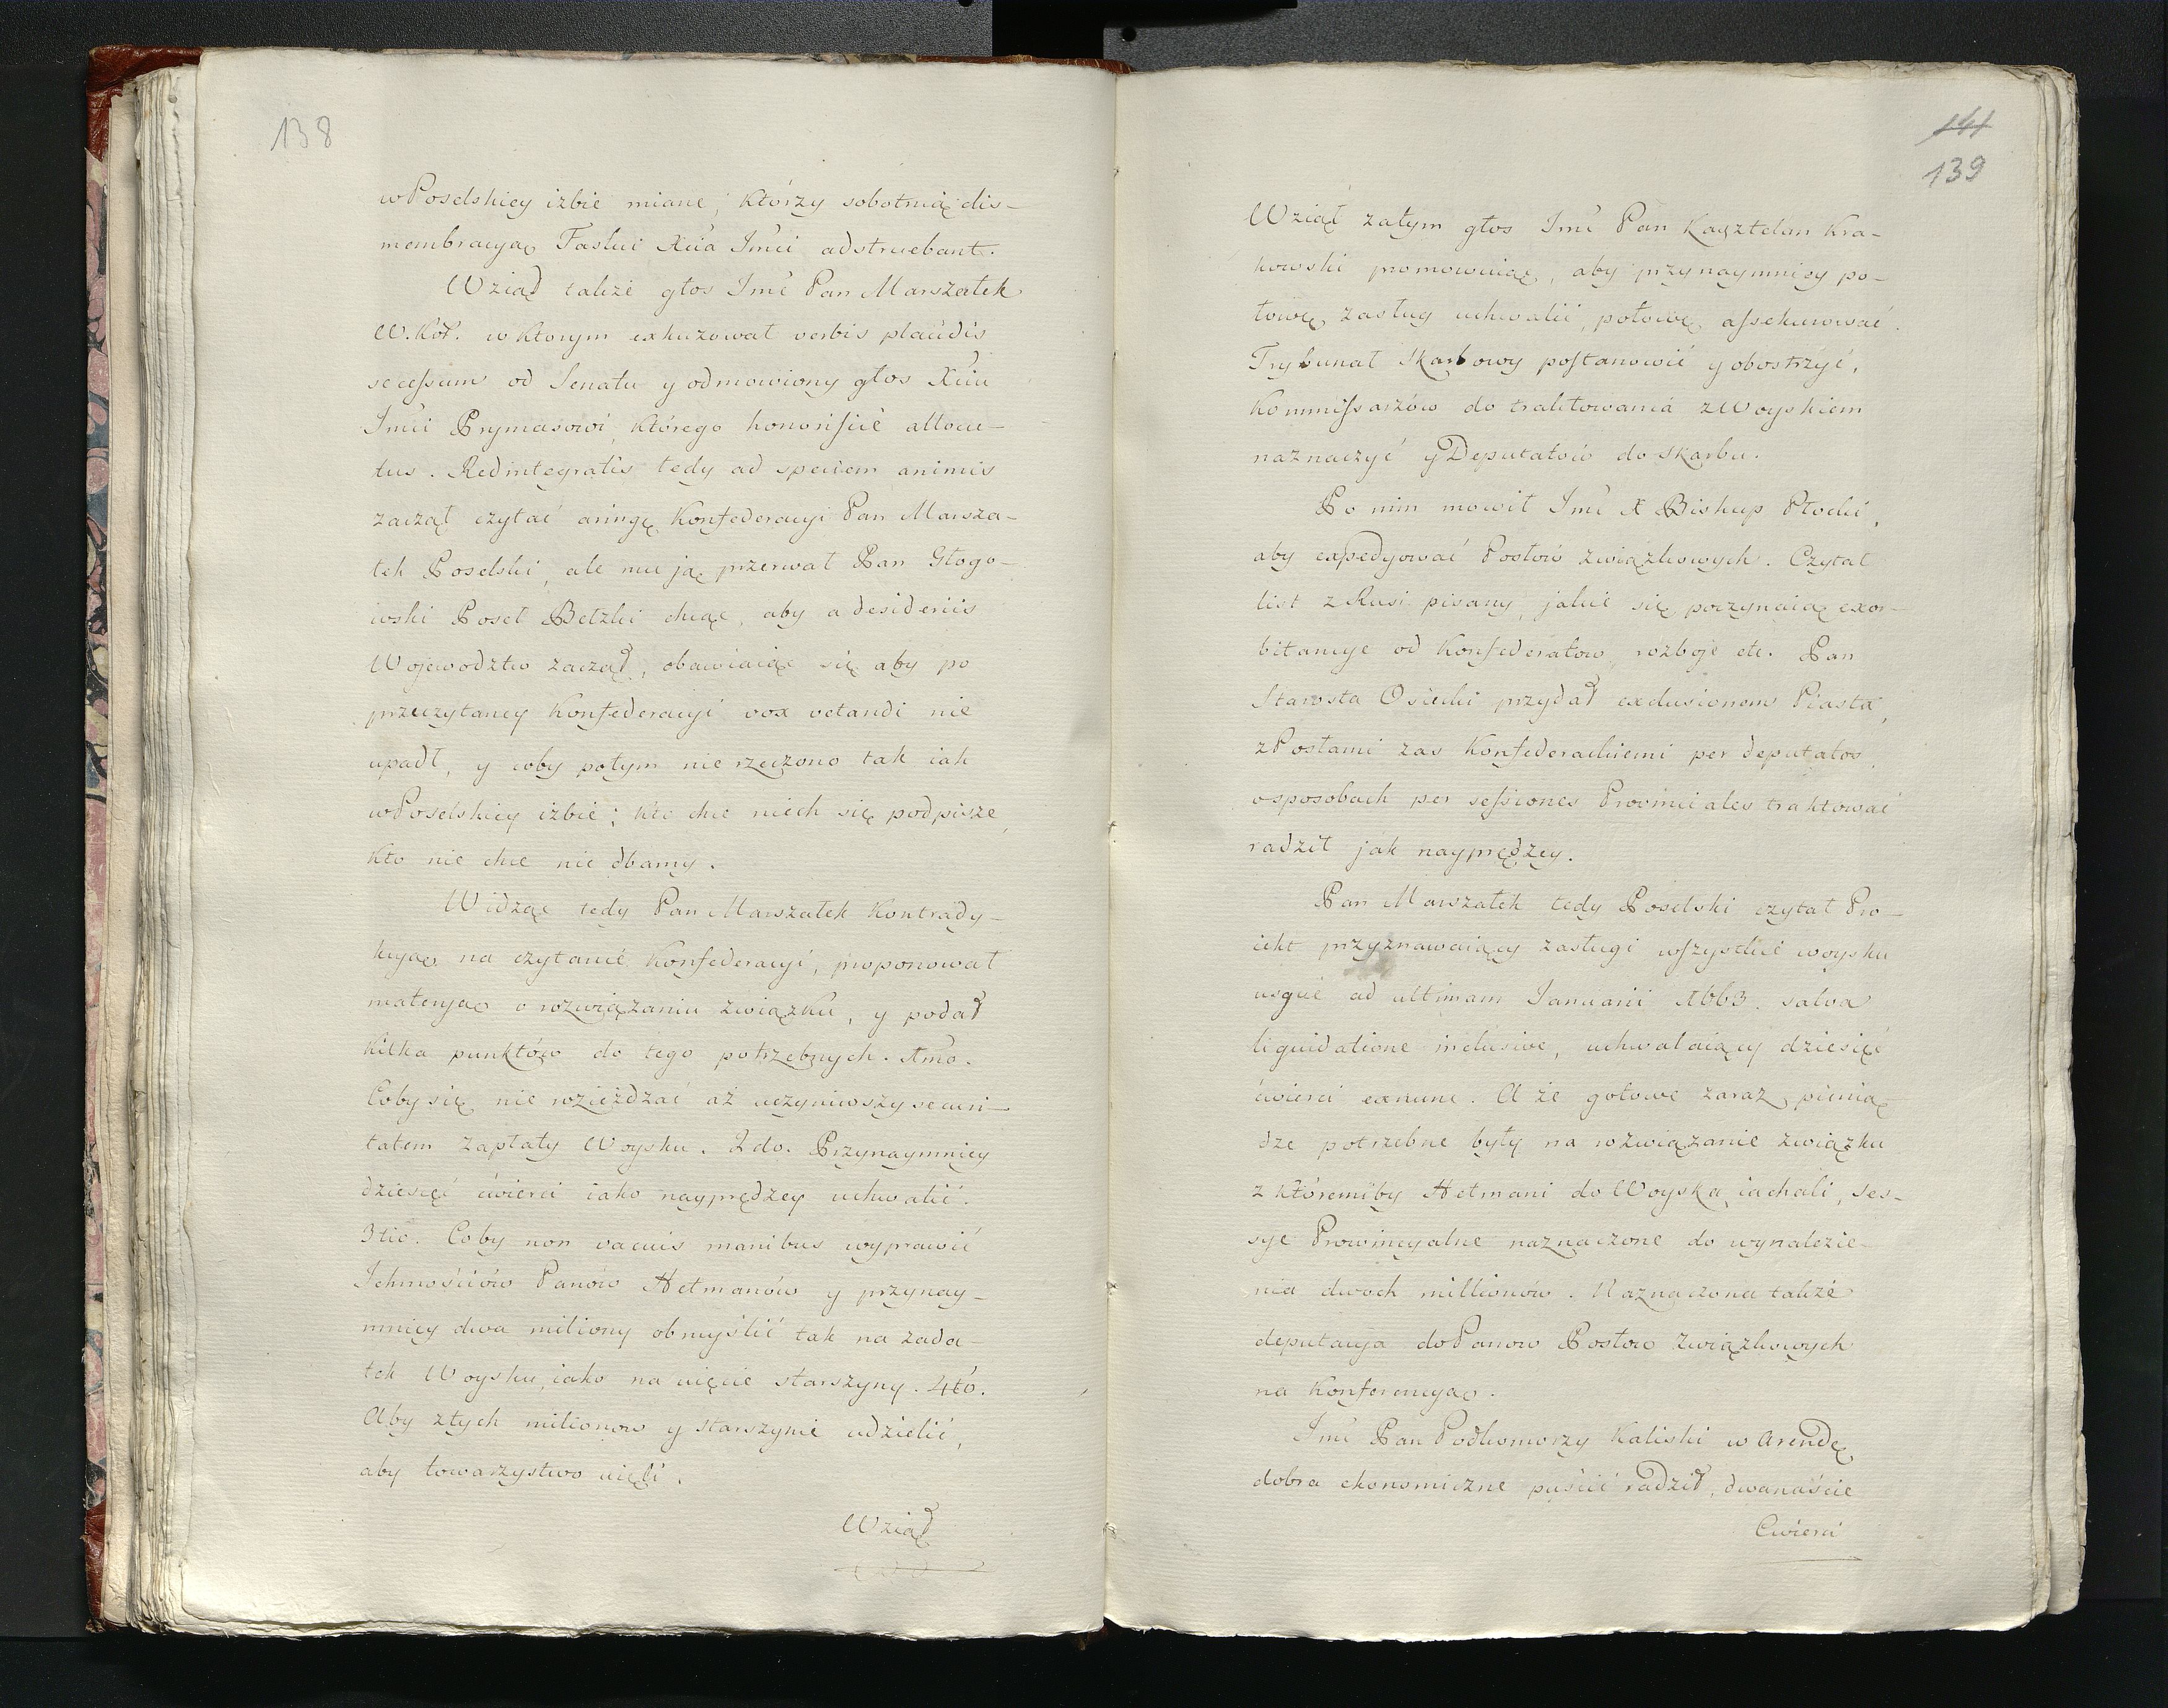 138
wPoselskiey izbie miane, Którzy sobotnią dis-
membracyą Faski Xcia Jmci adstruebant.
Wziął także głos Jmć Pan Marszałek
W. Kor. w Ktorym exkuzował verbis placidis
secessum od Senatu y odmowiony głos Xciu
Jmci Prymasowi, Którego honorificè allocu-
tus. Redintegratis tedy ad speciem animis
zaczął czytać aringę Konfederacyi Pan Marsza-
łek Poselski, ale mu ją przerwał Pan Głogo-
wski Poseł Bełzki chcąc, aby a desideriis
Wojewodztw zaczął, obawiaiąc się aby po
przeczytaney Konfederacyi vox vetandi nie
upadł, y coby potym nie rzeczono tak iak
wPoselskiey izbie; Kto chce niech się podpisze,
Kto nie chce nie dbamy.
Widząc tedy Pan Marszałek Kontrady-
kcyą na czytanie Konfederacyi, proponował
materyą o rozwiązaniu związku, y podał
Kilka punktów do tego potrzebnych. 1mo.
Coby się nie rozieżdzać aż uczyniwszy securi-
tatem zapłaty Woysku. 2do. Przynaymniey
dziesięć ćwierci iako nayprędzey uchwalić.
3tio. Coby non vacuis manibus wyprawić
Ichmościów Panów Hetmanów y przynay-
mniey dwa miliony obmyślić tak na zada-
tek Woysku, iako na uięcie starszyny. 4to.
Aby ztych milionow y starszynie udzielić,
aby towarzystwo uięli.
Wziął
141
139
Wziął zatym głos Jmć Pan Kasztelan Kra-
kowski promowuiąc, aby przynaymniey po-
łowę zasług uchwalić, połowę assekurować.
Trybunał Skarbowy postanowić y obostrzyć,
Kommissarzów do traktowania zWoyskiem
naznaczyć y Deputatów do Skarbu.
Po nim mowił Jmć X Biskup Płocki,
aby expedyować Posłów związkowych. Czytał
list z Rusi pisany, jakie się poczynaią exor-
bitancye od Konfederatow, rozboje etc. Pan
Starosta Osiecki przydał exclusionem Piasta,
zPosłami zas Konfederackiemi per deputatos,
osposobach per sessiones Provinciales traktować
radził jak nayprędzey.
Pan Marszałek tedy Poselski czytał Pro-
iekt przyznawaiący zasługi wszystkie woysku
usque ad ultimam Januarii 1663. salva
liquidatione inclusive, uchwalaiący dziesięć
ćwierci exnunc. A że gotowe zaraz pienią
dze potrzebne były na rozwiązanie związku
z Któremiby Hetmani do Woyska iachali, ses-
sye Prowincyalne naznaczone do wynalezie-
nia dwoch millionów. Naznaczona także
deputacya doPanow Posłow Związkowych
na Konferencyą.
Jmć Pan Podkomorzy Kaliski w Arendę
dobra ekonomiczne puścić radził, dwanaście
Cwierci